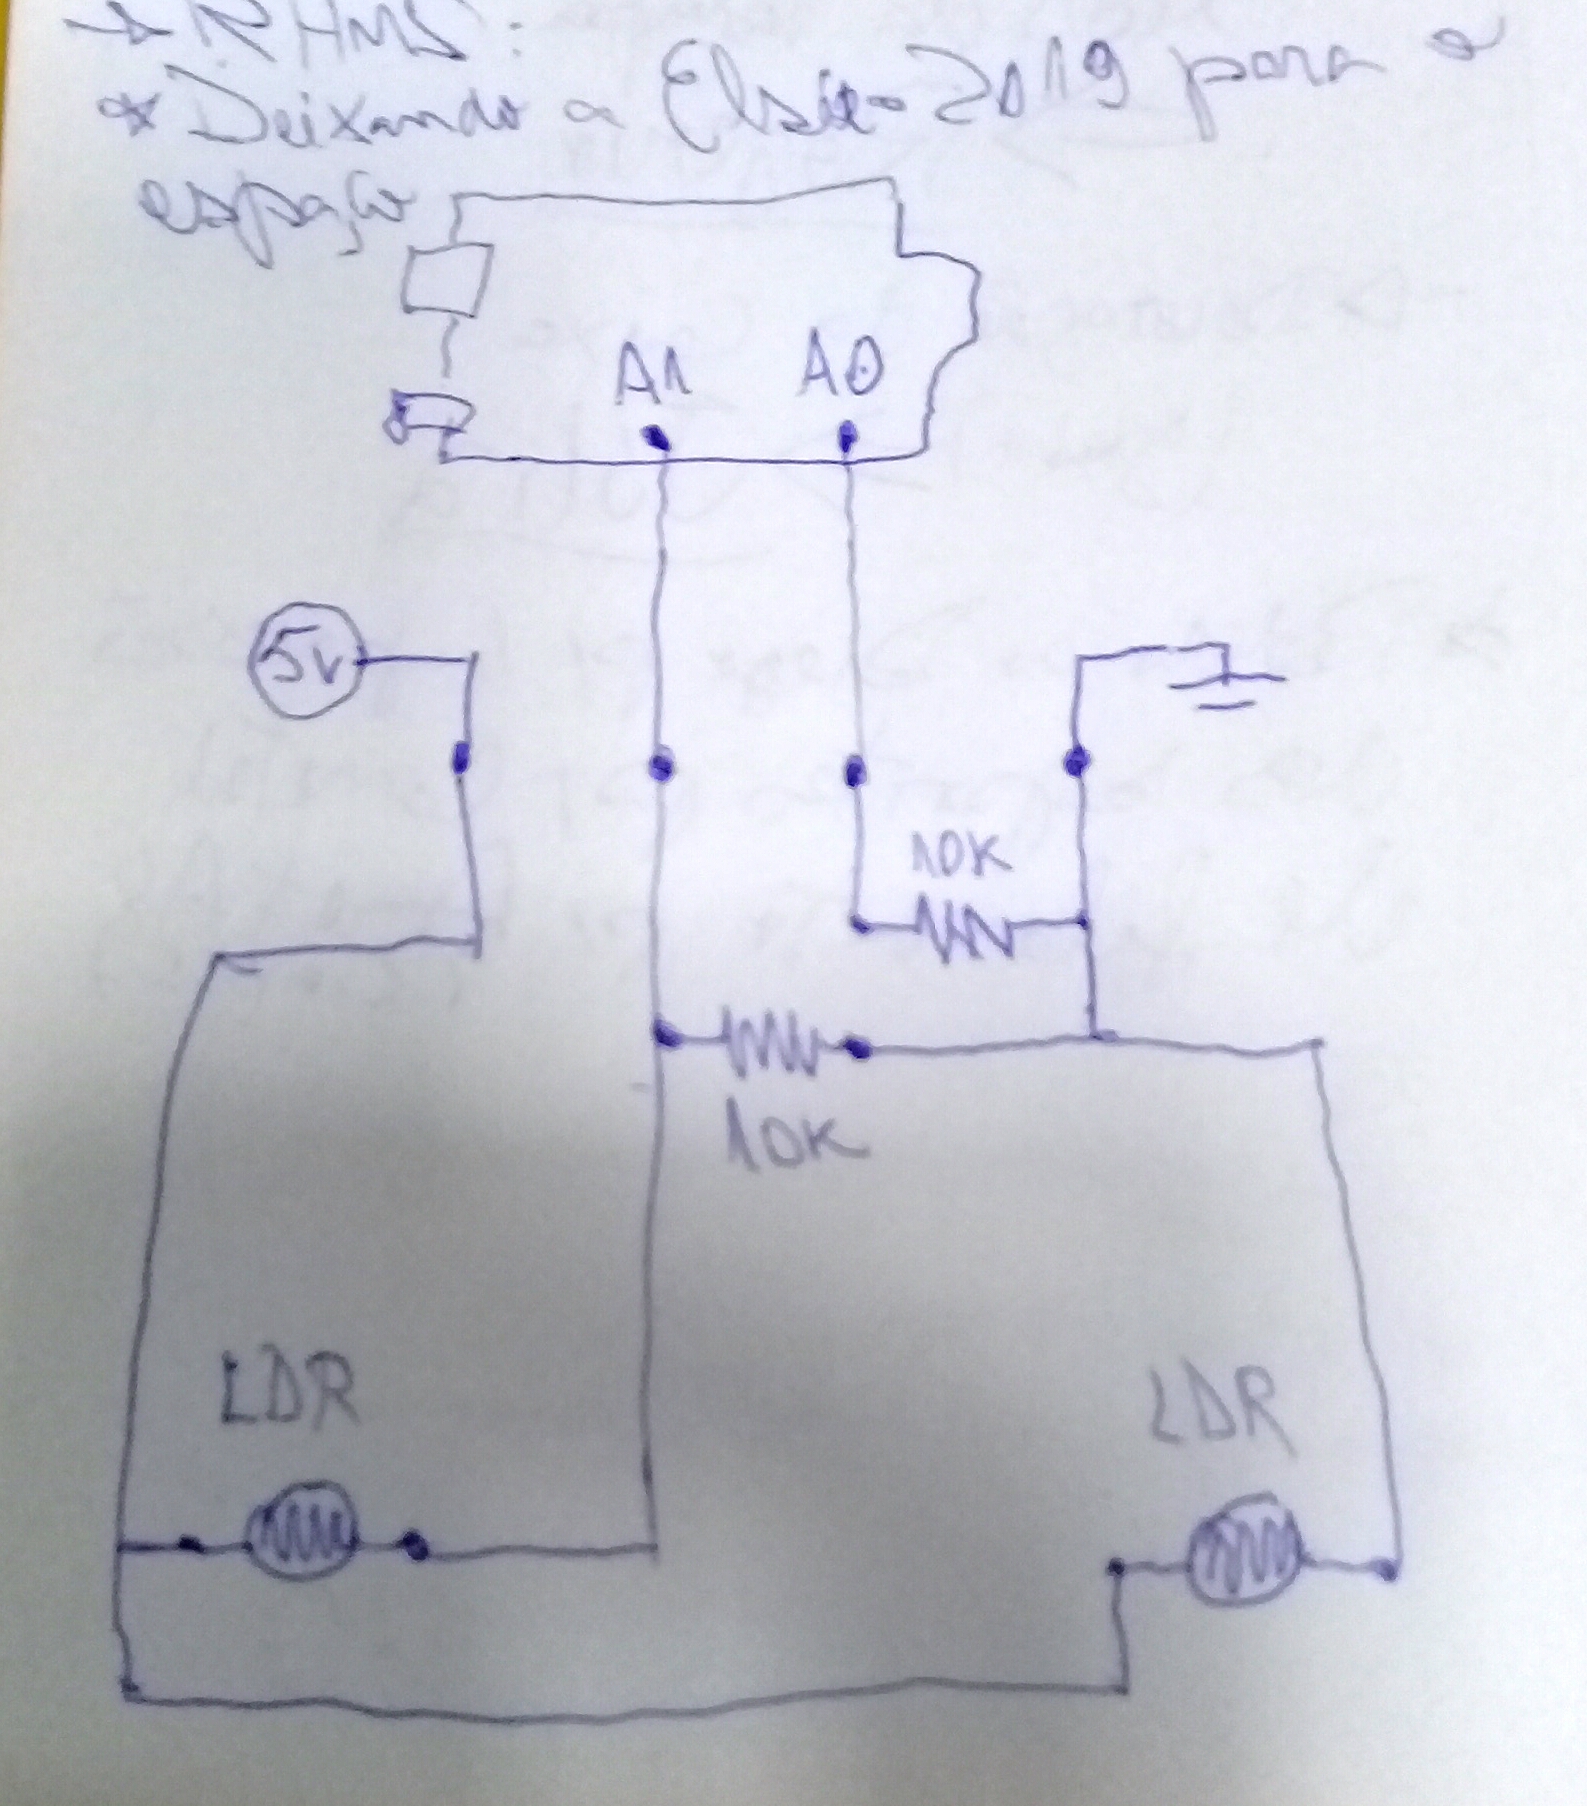 → RHMS:
* Deixando a Elsie-2019 para o
espaço
A1 A0
5v
10K
10K
LDR
LDR